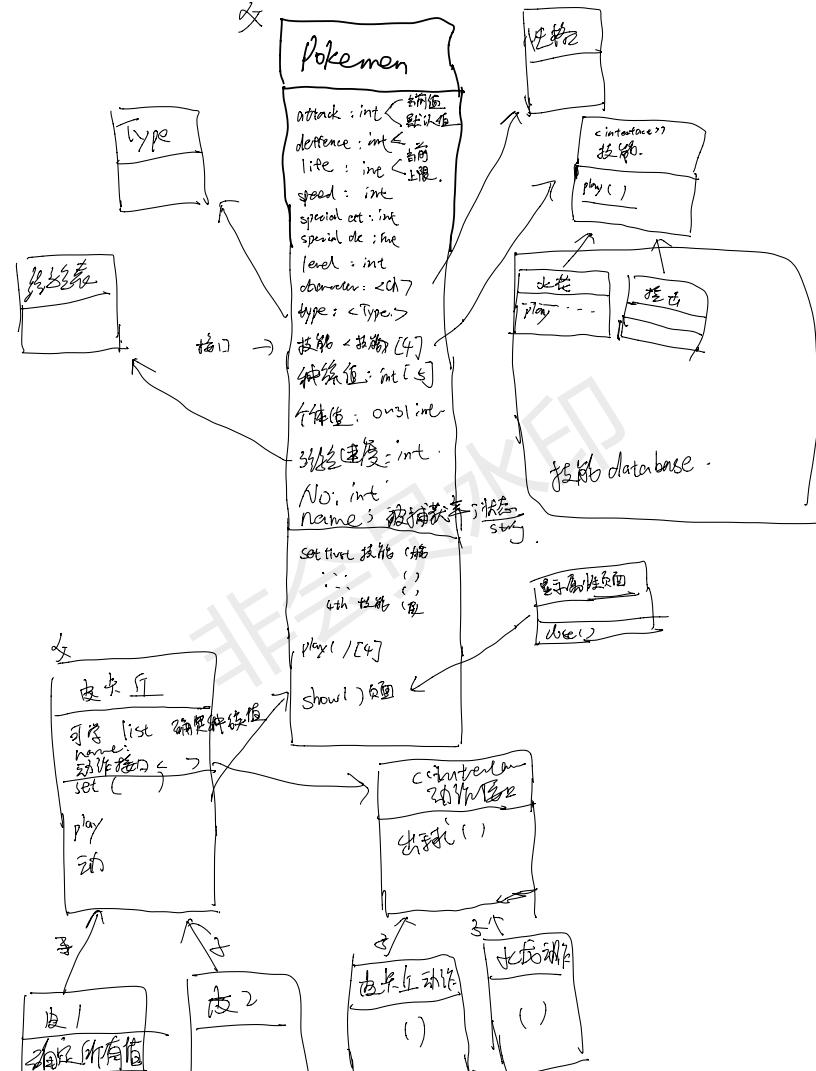 父
Pokemen
attack : int 当前值
默认值
deffence : int
life : int 当前
上限
speed : int
special att : int
special de : int
level : int
character : <Ch>
type : <Type>
接口 → 技能 <技能> [4]
种族值 : int [6]
个体值 : 0~31 int
经验速度 : int
No : int
name ; 被捕获率 ; 状态
string
set first 技能 (
( )
( )
4th 技能 (
play( )[4]
show( ) 页面
Type
经验表
性格
<interface>>
技能
play ( )
水花
play ...
撞击
技能 database .
显示属性页面
close( )
父
皮卡丘
可学 list 确定种族值
name :
动作接口 < >
set ( )
play
动
子
子
皮1
确定所有值
皮2
<<interface
动作接口
出招式 ( )
子
子
皮卡丘动作
( )
( )
非会员水印